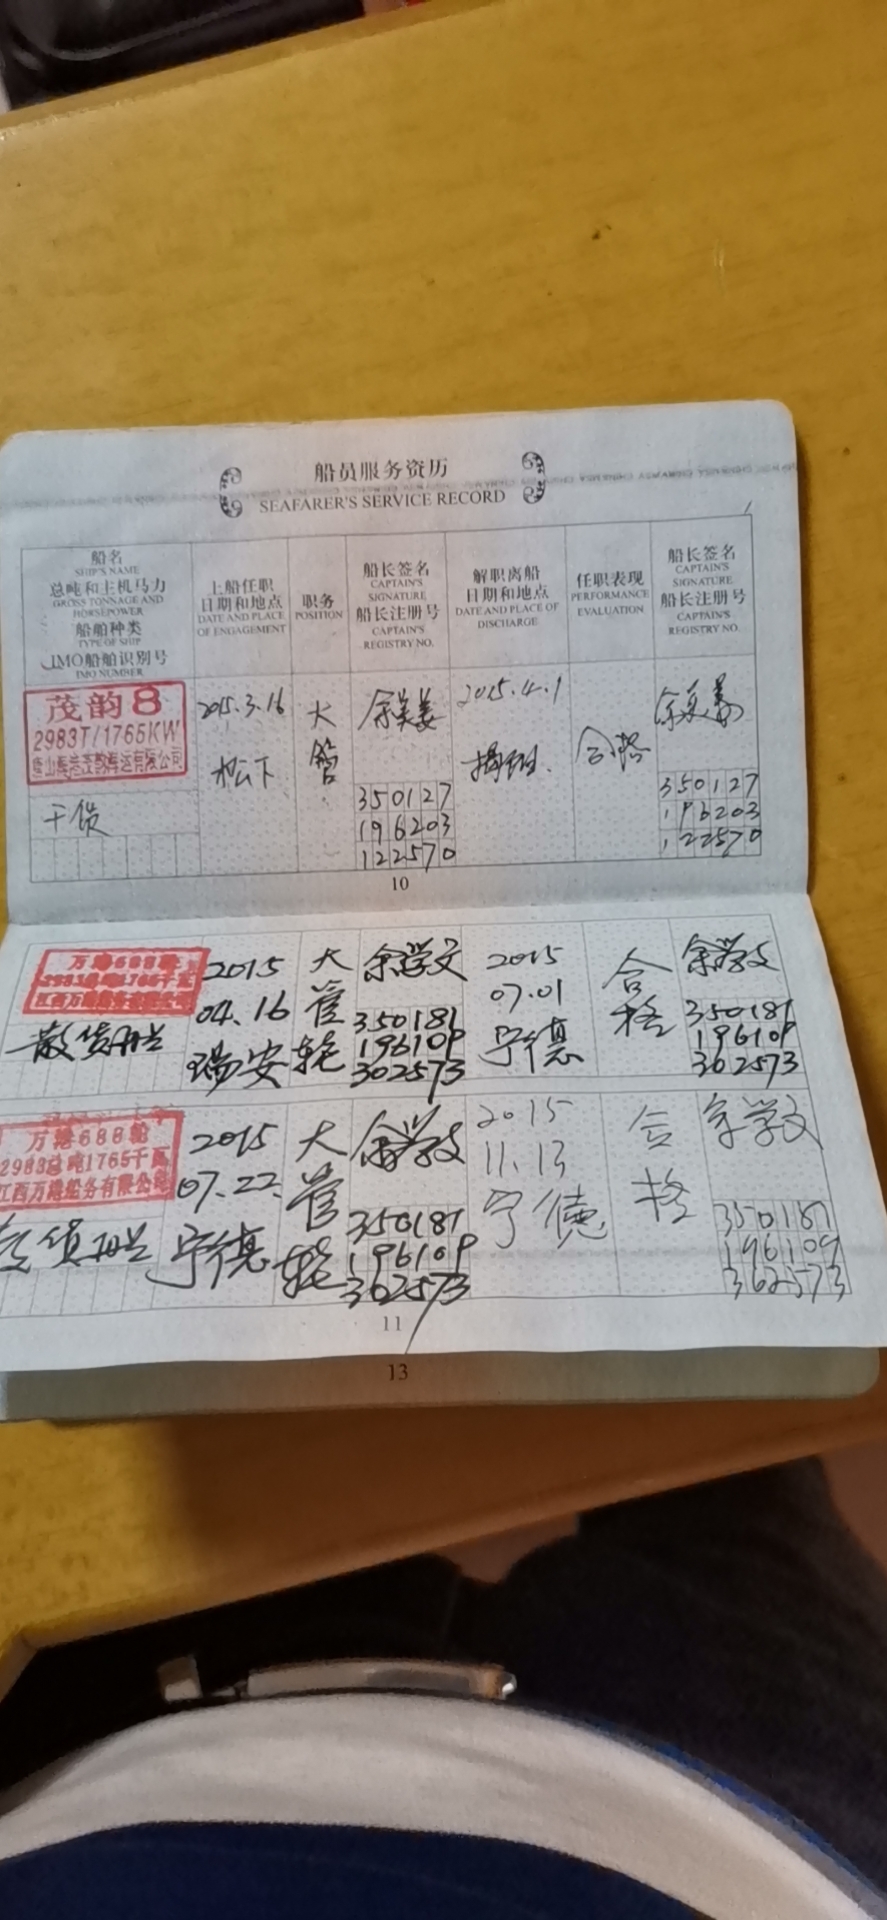 船员服务资历
SEAFARER'S SERVICE RECORD
船名
SHIP'S NAME
总吨和主机马力
GROSS TONNAGE AND
HORSEPOWER
船舶种类
TYPE OF SHIP
IMO船舶识别号
IMO NUMBER
上船任职
日期和地点
DATE AND PLACE
OF ENGAGEMENT
职务
POSITION
船长签名
CAPTAIN'S
SIGNATURE
船长注册号
CAPTAIN'S
REGISTRY NO.
解职离船
日期和地点
DATE AND PLACE OF
DISCHARGE
任职表现
PERFORMANCE
EVALUATION
船长签名
CAPTAIN'S
SIGNATURE
船长注册号
CAPTAIN'S
REGISTRY NO.
茂韵8
2983T/1765KW
海运有限公司
干货
2015.3.16
松下
大
管
350127
196203
122570
2015.4.1
合格
350127
196203
122570
10
万港688轮
散货船
2015
04.16
瑞安
大
管
轮
余学文
350181
196109
302573
2015
07.01
宁德
合
格
余学文
350181
196109
302573
万港688轮
2983总吨1765千瓦
江西万港船务有限公司
货船
2015
07.22
宁德
大
管
轮
余学文
350181
196109
302573
2015
11.13
宁德
合
格
余学文
350181
196109
302573
11
13